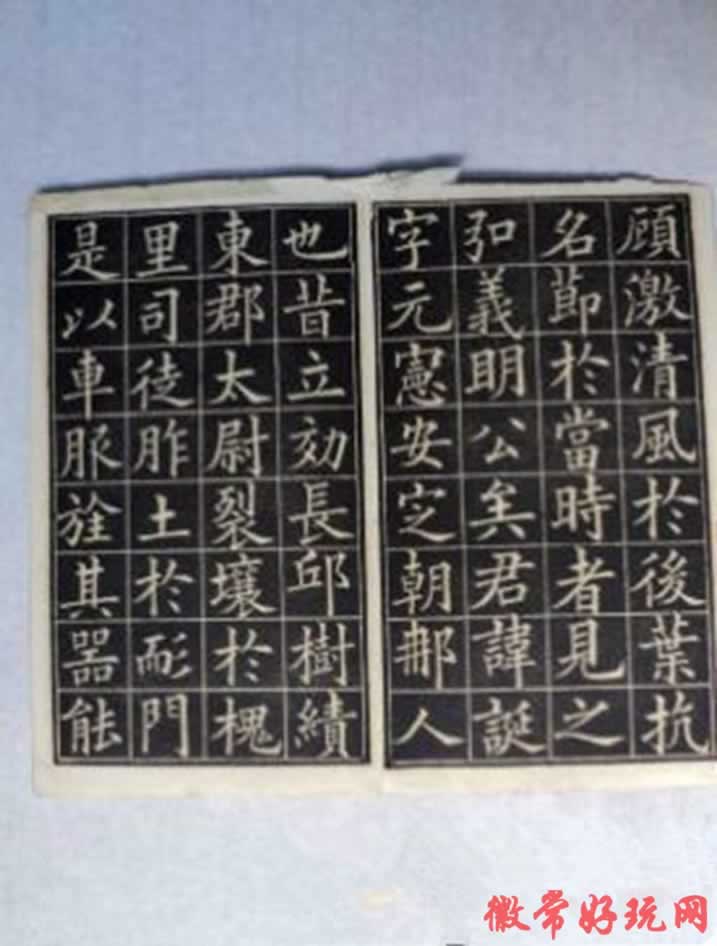 顧激清風於後葉抗
名節於當時者見之
弘義明公矣君諱誕
字元憲安定朝那人
也昔立効長邱樹績
東郡太尉裂壤於槐
里司徒胙土於耏門
是以車服旌其器能
徽常好玩网